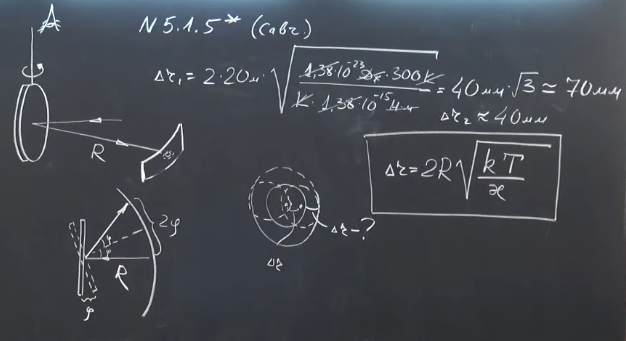 N 5.1.5* (савч.)
Δr₁ = 2·20м·√(1,38·10⁻²³ Дж·300К / К·1,38·10⁻¹⁵ Нм) = 40мм·√3 ≃ 70мм
Δr₂ ≈ 40мм
Δr = 2R√(kT/ϰ)
R
2φ
R
φ
Δr - ?
Δr